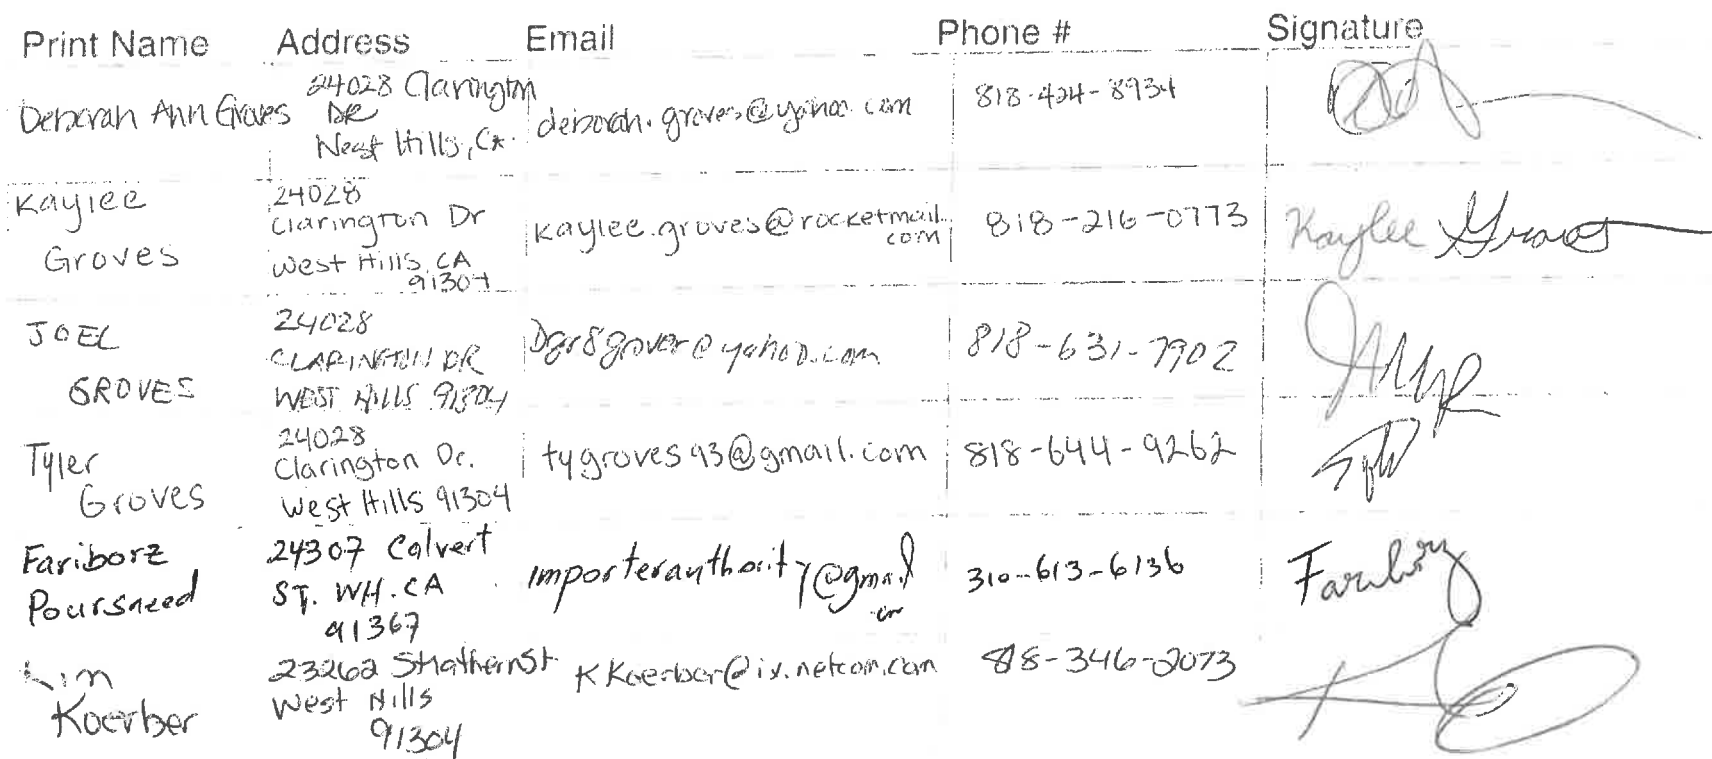 Print Name Address Email Phone # Signature
Deborah Ann Groves
24028 Clarington
DR
West Hills, CA.
deborah.groves@yahoo.com
818-424-8934
Kaylee
Groves
24028
Clarington Dr
West Hills, CA
91304
kaylee.groves@rocketmail.
com
818-216-0773
Kaylee Groves
JOEL
GROVES
24028
CLARINGTON DR
WEST HILLS 91304
818-631-7902
Tyler
Groves
24028
Clarington Dr.
West Hills 91304
tygroves93@gmail.com
818-644-9262
Fariborz
Poursaeed
24307 Calvert
ST. WH. CA
91367
Importerauthority@gmail
.com
310-613-6136
Fariborz
Kim
Koerber
23262 Strathern St
West Hills
91304
KKoerber@ix.netcom.com
818-346-2073